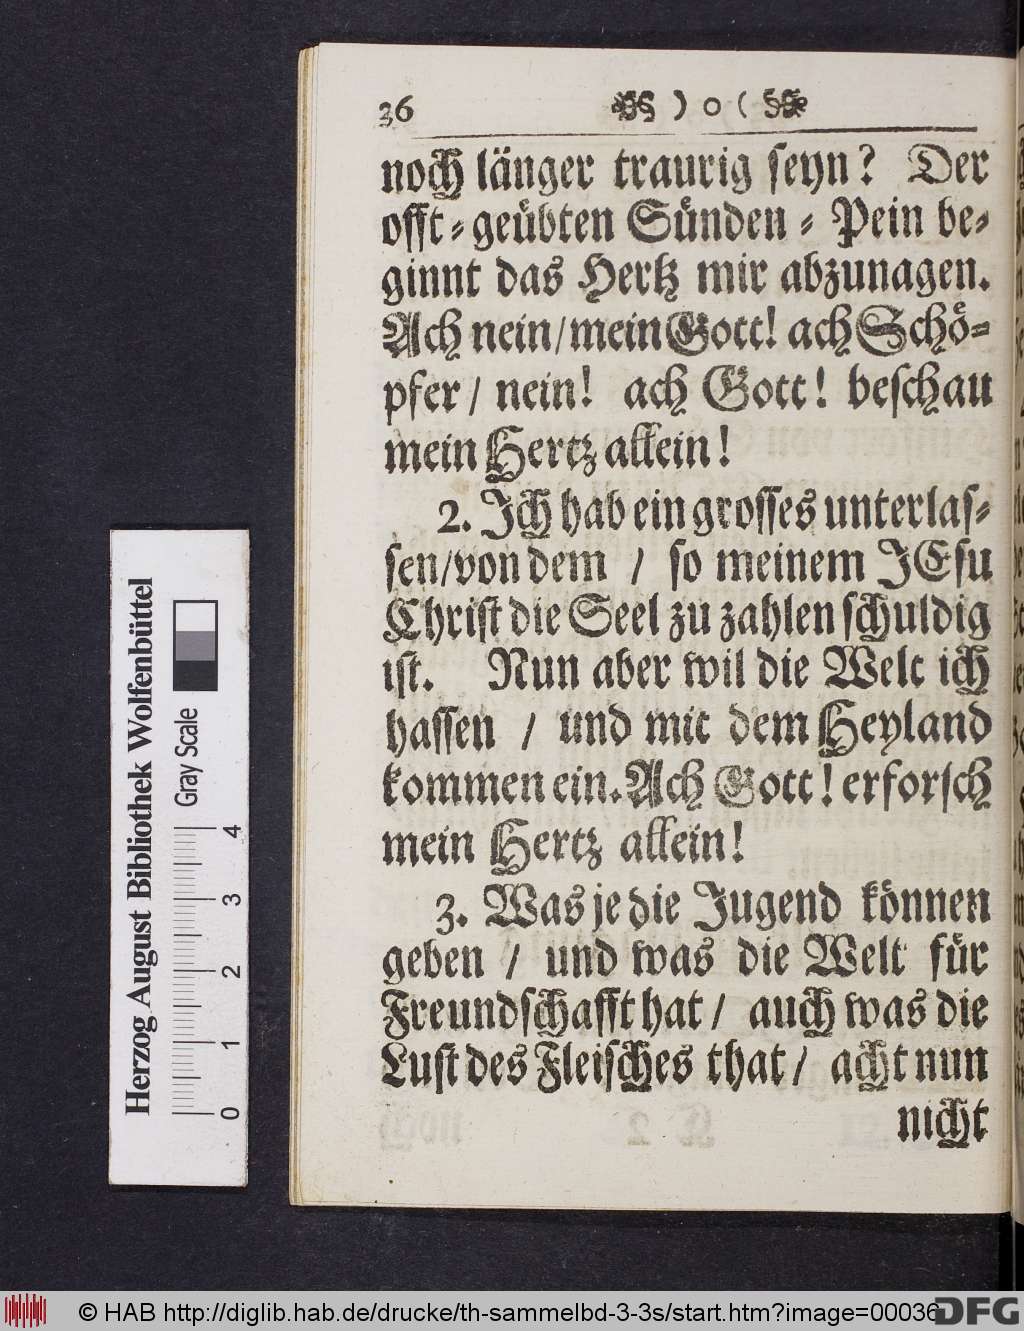 36 ) o (
noch länger traurig seyn? Der
offt-geübten Sünden-Pein be-
ginnt das Hertz mir abzunagen.
Ach nein/mein Gott! ach Schö-
pfer/ nein! ach Gott! beschau
mein Hertz allein!
2. Ich hab ein grosses unterlas-
sen/von dem / so meinem JEsu
Christ die Seel zu zahlen schuldig
ist. Nun aber wil die Welt ich
hassen / und mit dem Heyland
kommen ein. Ach Gott! erforsch
mein Hertz allein!
3. Was je die Jugend können
geben / und was die Welt für
Freundschafft hat/ auch was die
Lust des Fleisches that/ acht nun
nicht
Herzog August Bibliothek Wolfenbüttel
Gray Scale
0 1 2 3 4
© HAB http://diglib.hab.de/drucke/th-sammelbd-3-3s/start.htm?image=00036
DFG